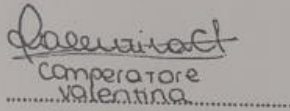 comperatore
valentina